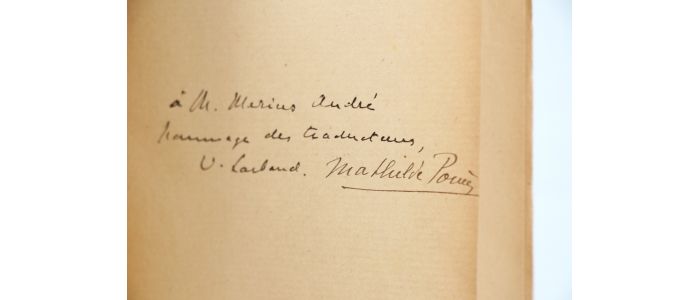 à M. Marius André
hommage des traducteurs,
V. Larbaud. Mathilde Pomès